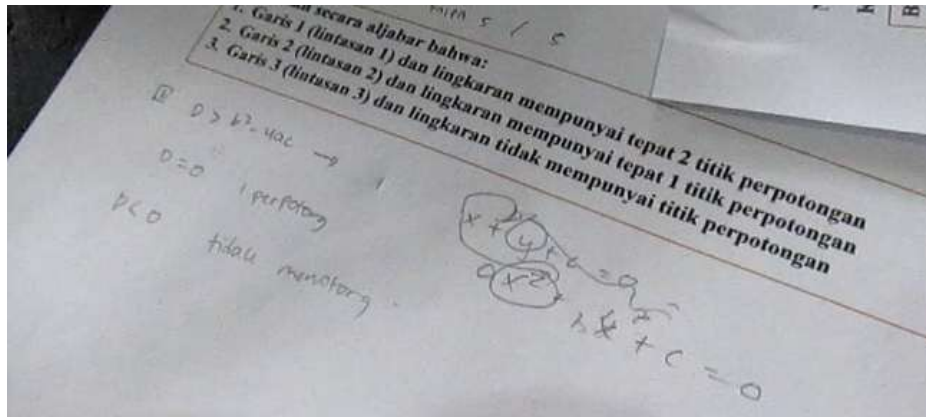 secara aljabar bahwa:
1. Garis 1 (lintasan 1) dan lingkaran mempunyai tepat 2 titik perpotongan
2. Garis 2 (lintasan 2) dan lingkaran mempunyai tepat 1 titik perpotongan
3. Garis 3 (lintasan 3) dan lingkaran tidak mempunyai titik perpotongan
D > b²-4ac →
D=0 1 perpotong
D<0 tidak memotong.
x + y + c = 0
x²
+ c = 0